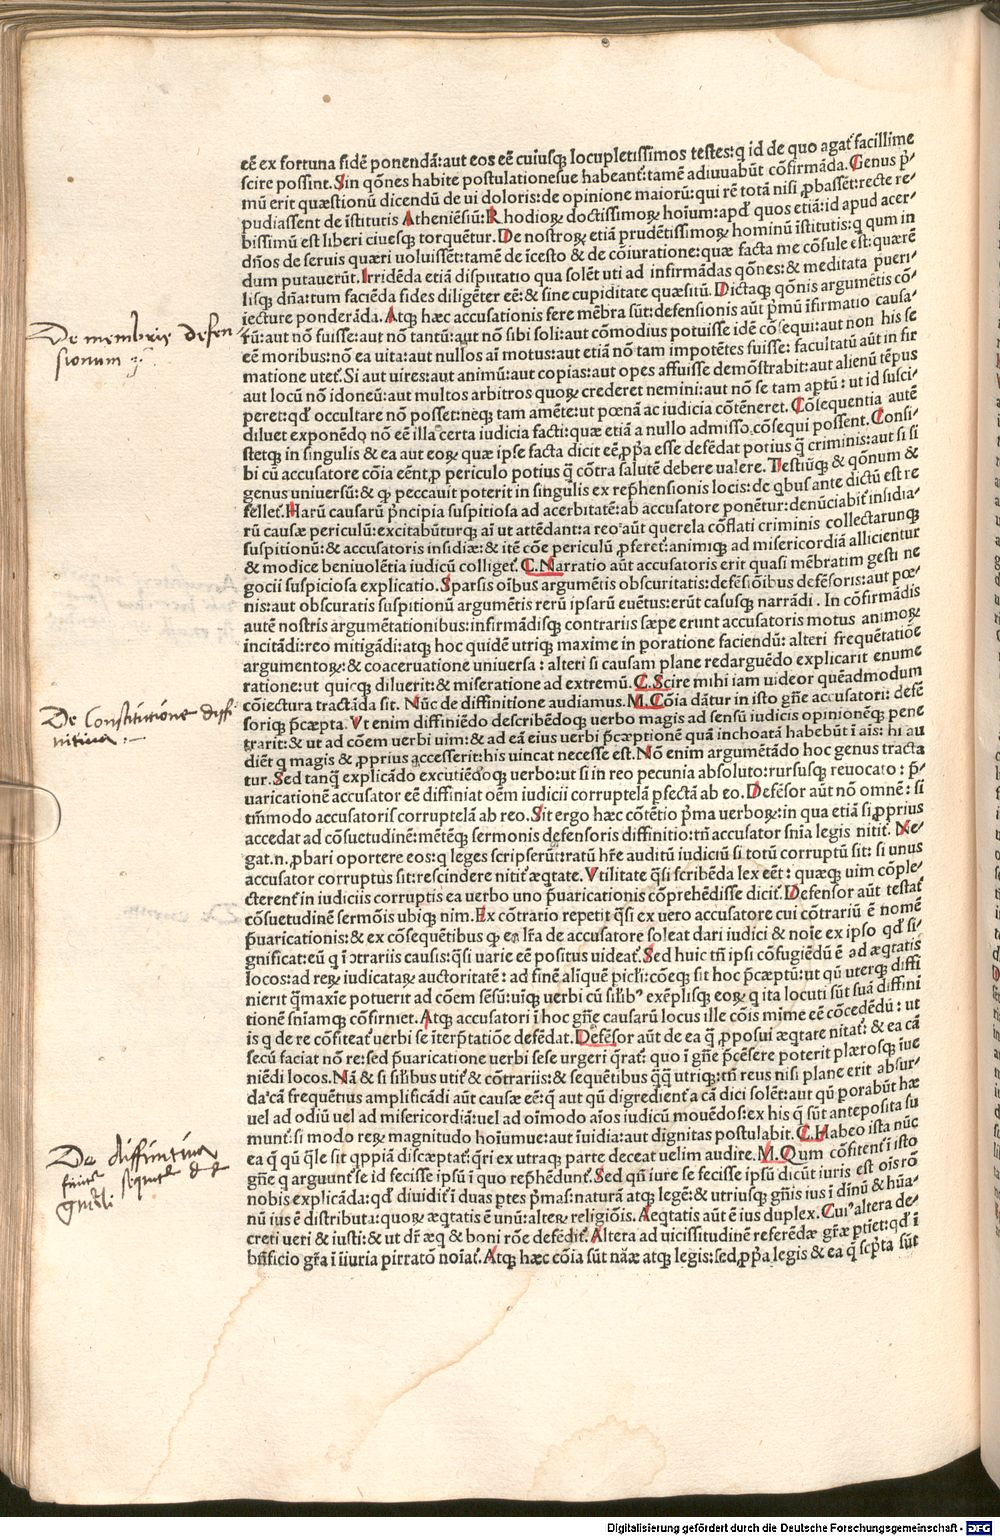 eē ex fortuna fidē ponendā: aut eos eē cuiusqꝫ locupletissimos testes: q id de quo agat᷑ facillime
scire possint. Sin qōnes habite postulationesue habeant᷑: tamē adiuuabūt cōfirmāda. Genus p̄-
mū erit quæstionū dicendū de ui doloris: de opinione maiorū: qui rē totā nisi ꝓbassēt: recte re-
pudiassent de īstitutis Atheniēsiū: Rhodioꝝ doctissimoꝝ hoīum: apd̕ quos etiā: id apud acer-
bissimū est liberi ciuesqꝫ torquētur. De nostroꝝ etiā prudētissimoꝝ hominū īstitutis: q qum in
dn̄os de seruis quæri uoluissēt: tamē de īcesto & de cōiuratione: quæ facta me cōsule est: quærē
dum putauerūt. Irridēda etiā disputatio qua solēt uti ad infirmādas qōnes: & meditata pueri-
lisqꝫ dn̄a: tum faciēda fides diligēter eē: & sine cupiditate quæsitū. Dictaqꝫ qōnis argumētis cō-
iecture ponderāda. Atqꝫ hæc accusationis fere mēbra sūt: defensionis aūt p̄mū īfirmatio causa-
rū: aut nō fuisse: aut nō tantū: aut nō sibi soli: aut cōmodius potuisse idē cōsequi: aut non his se
eē moribus: nō ea uita: aut nullos ai̅ motus: aut etiā nō tam impotētes fuisse: facultatū aūt in fir
matione utet᷑. Si aut uires: aut animū: aut copias: aut opes affuisse demōstrabit: aut alienū tēpus
aut locū nō idoneū: aut multos arbitros quoꝝ crederet nemini: aut nō se tam aptū: ut id susci-
peret: qd̕ occultare nō posset: neqꝫ tam amēte: ut pœnā ac iudicia cōtēneret. Cōsequentia autē
diluet exponēdo nō eē illa certa iudicia facti: quæ etiā a nullo admisso cōsequi possent. Consi-
stetqꝫ in singulis & ea aut eoꝝ quæ ipse facta dicit eē ꝓp̄a esse defēdat potius q̄ criminis: aut si si
bi cū accusatore cōia eēnt, ꝓ periculo potius q̄ cōtra salutē debere ualere. Testiūqꝫ & qōnum &
genus uniuersū: & qꝙ peccauit poterit in singulis ex rep̄hensionis locis: de qbus ante dictū est re
fellet᷑. Harū causarū p̄ncipia suspitiosa ad acerbitatē: ab accusatore ponētur: denūciabit᷑ insidia-
rū causæ periculū: excitabūturqꝫ ai̅ ut attēdant: a reo aūt querela cōflati criminis collectarunqꝫ
suspitionū: & accusatoris insidiæ: & itē cōe periculū ꝓferet᷑: animiqꝫ ad misericordiā allicientur
& modice beniuolētia iudicū colliget᷑. C. Narratio aūt accusatoris erit quasi mēbratim gesti ne
gocii suspiciosa explicatio. Sparsis oībus argumētis obscuritatis: defēsiōibus defēsoris: aut pœ-
nis: aut obscuratis suspitionū argumētis rerū ipsarū euētus: erūt casusqꝫ narrādi. In cōfirmādis
autē nostris argumētationibus: infirmādisqꝫ contrariis sæpe erunt accusatoris motus animoꝝ
incitādi: reo mitigādi: atqꝫ hoc quidē utriqꝫ maxime in poratione faciendū: alteri frequētatiōe
argumentoꝝ: & coaceruatione uniuersa: alteri si causam plane redarguēdo explicarit enume
ratione: ut quicqꝫ diluerit: & miseratione ad extremū. C. Scire mihi iam uideor quēadmodum
cōiectura tractāda sit. Nūc de diffinitione audiamus. M. Cōia dātur in isto gn̄e accusatori: defē
soriqꝫ p̄cæpta. Vt enim diffiniēdo describēdoqꝫ uerbo magis ad sensū iudicis opinionēqꝫ pene
trarit: & ut ad cōem uerbi uim: & ad eā eius uerbi p̄cæptionē quā inchoatā habebūt ī ais: hi au
diēt q magis & ꝓprius accesserit: his uincat necesse est. Nō enim argumētādo hoc genus tracta
tur. Sed tanq̄ explicādo excutiēdoqꝫ uerbo: ut si in reo pecunia absoluto: rursusqꝫ reuocato: p̄-
uaricationē accusator eē diffiniat oēm iudicii corruptelā ꝑfectā ab eo. Defēsor aūt nō omnē: si
tm̄modo accusatoris corruptelā ab reo. Sit ergo hæc cōtētio p̄ma uerboꝝ: in qua etiā si ꝓprius
accedat ad cōsuetudinē: mētēqꝫ sermonis defensoris diffinitio: tn̄ accusator sn̄ia legis nitit᷑. Ne-
gat. n. ꝓbari oportere eos: q leges scripserūt: ratū hr̄e auditū iudiciū si totū corruptū sit: si unus
accusator corruptus sit: rescindere nitit᷑ æqtate. Vtilitate q̄si scribēda lex eēt: quæqꝫ uim cōple-
cterent᷑ in iudiciis corruptis ea uerbo uno p̄uaricationis cōprehēdisse dicit᷑. Defensor aūt testat᷑
cōsuetudinē sermōis ubiqꝫ nim. Ex cōtrario repetit q̄si ex uero accusatore cui cōtrariū ē nomē
p̄uaricationis: & ex cōsequētibus qꝙ ea lr̄a de accusatore soleat dari iudici & noīe ex ipso qd̕ si-
gnificat: eū q ī ɔtrariis causis: q̄si uarie eē positus uideat᷑. Sed huic tn̄ ipsi cōfugiēdū ē ad æqtatis
locos: ad reꝝ iudicataꝝ auctoritatē: ad finē aliquē picli: cōeqꝫ sit hoc p̄cæptū: ut qū uterqꝫ diffi
nierit q̄maxīe potuerit ad cōem sēsū: uīqꝫ uerbi cū silib᾽ exēplisqꝫ eoꝝ q ita locuti sūt suā diffini
tionē sn̄iamqꝫ cōfirmet. Atqꝫ accusatori ī hoc gn̄e causarū locus ille cōis mi̅me eē cōcedēdū: ut
is q de re cōfiteat᷑ uerbi se īterp̄tatiōe defēdat. Defēsor aūt de ea q̄ ꝓposui æqtate nitat᷑: & ea cā
secū faciat nō re: sed p̄uaricatione uerbi sese urgeri q̄rat᷑: quo ī gn̄e p̄cēsere poterit plærosqꝫ iue
niēdi locos. Nā & si silibus utit᷑ & cōtrariis: & seqūētibus q̄q̄ utriqꝫ: tn̄ reus nisi plane erit absur-
da cā frequētius amplificādi aūt causæ eē: q̄ aut qū digredient᷑ a cā dici solēt: aut qū porabūt hæ
uel ad odiū uel ad misericordiā: uel ad oi̅modo aīos iudicū mouēdos: ex his q̄ sūt anteposita su
munt᷑: si modo reꝝ magnitudo hoīumue: aut īuidia: aut dignitas postulabit. C. Habeo ista nūc
ea q̄ qū q̄le sit qppiā discæptat᷑: q̄ri ex utraqꝫ parte deceat uelim audire. M. Qum cōfitent᷑ ī isto
gn̄e q arguunt᷑ se id fecisse ipsū ī quo rep̄hēdunt᷑. Sed qn̄ iure se fecisse ipsū dicūt iuris est ois rō
nobis explicāda: qd̕ diuidit᷑ ī duas ꝑtes p̄mas: naturā atqꝫ legē: & utriusqꝫ gn̄is ius ī diuinū & hūa-
nū ius ē distributa: quoꝝ æqtatis ē unū: alteꝝ religiōis. Aeqtatis aūt ē ius duplex. Cui᾽ altera de-
creti ueri & iusti: & ut dr̄ æq & boni rōe defēdit᷑. Altera ad uicissitudinē referēdæ gr̄æ ꝑtiet: qd̕ ī
bn̄ficio gr̄a ī iiuria pirratō noīat᷑. Atqꝫ hæc cōia sūt nāæ atqꝫ legis: sed ꝓp̄a legis & ea q̄ scp̄ta sūt
De membris defen
sionum
De Constitutione diffi
nitiua
De diffinitiua
Digitalisierung gefördert durch die Deutsche Forschungsgemeinschaft - DFG